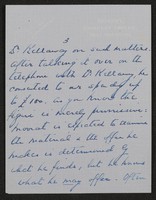 3
Dr Kellaway on such matters
after talking it over on the
telephone with Dr Kellaway, he
consented to our spending up
to £100. As you know the
figure is merely provisional;
is expected to examine
the material & the offer he
makes is determined by
what he finds, but he knows
what he may offer. Often